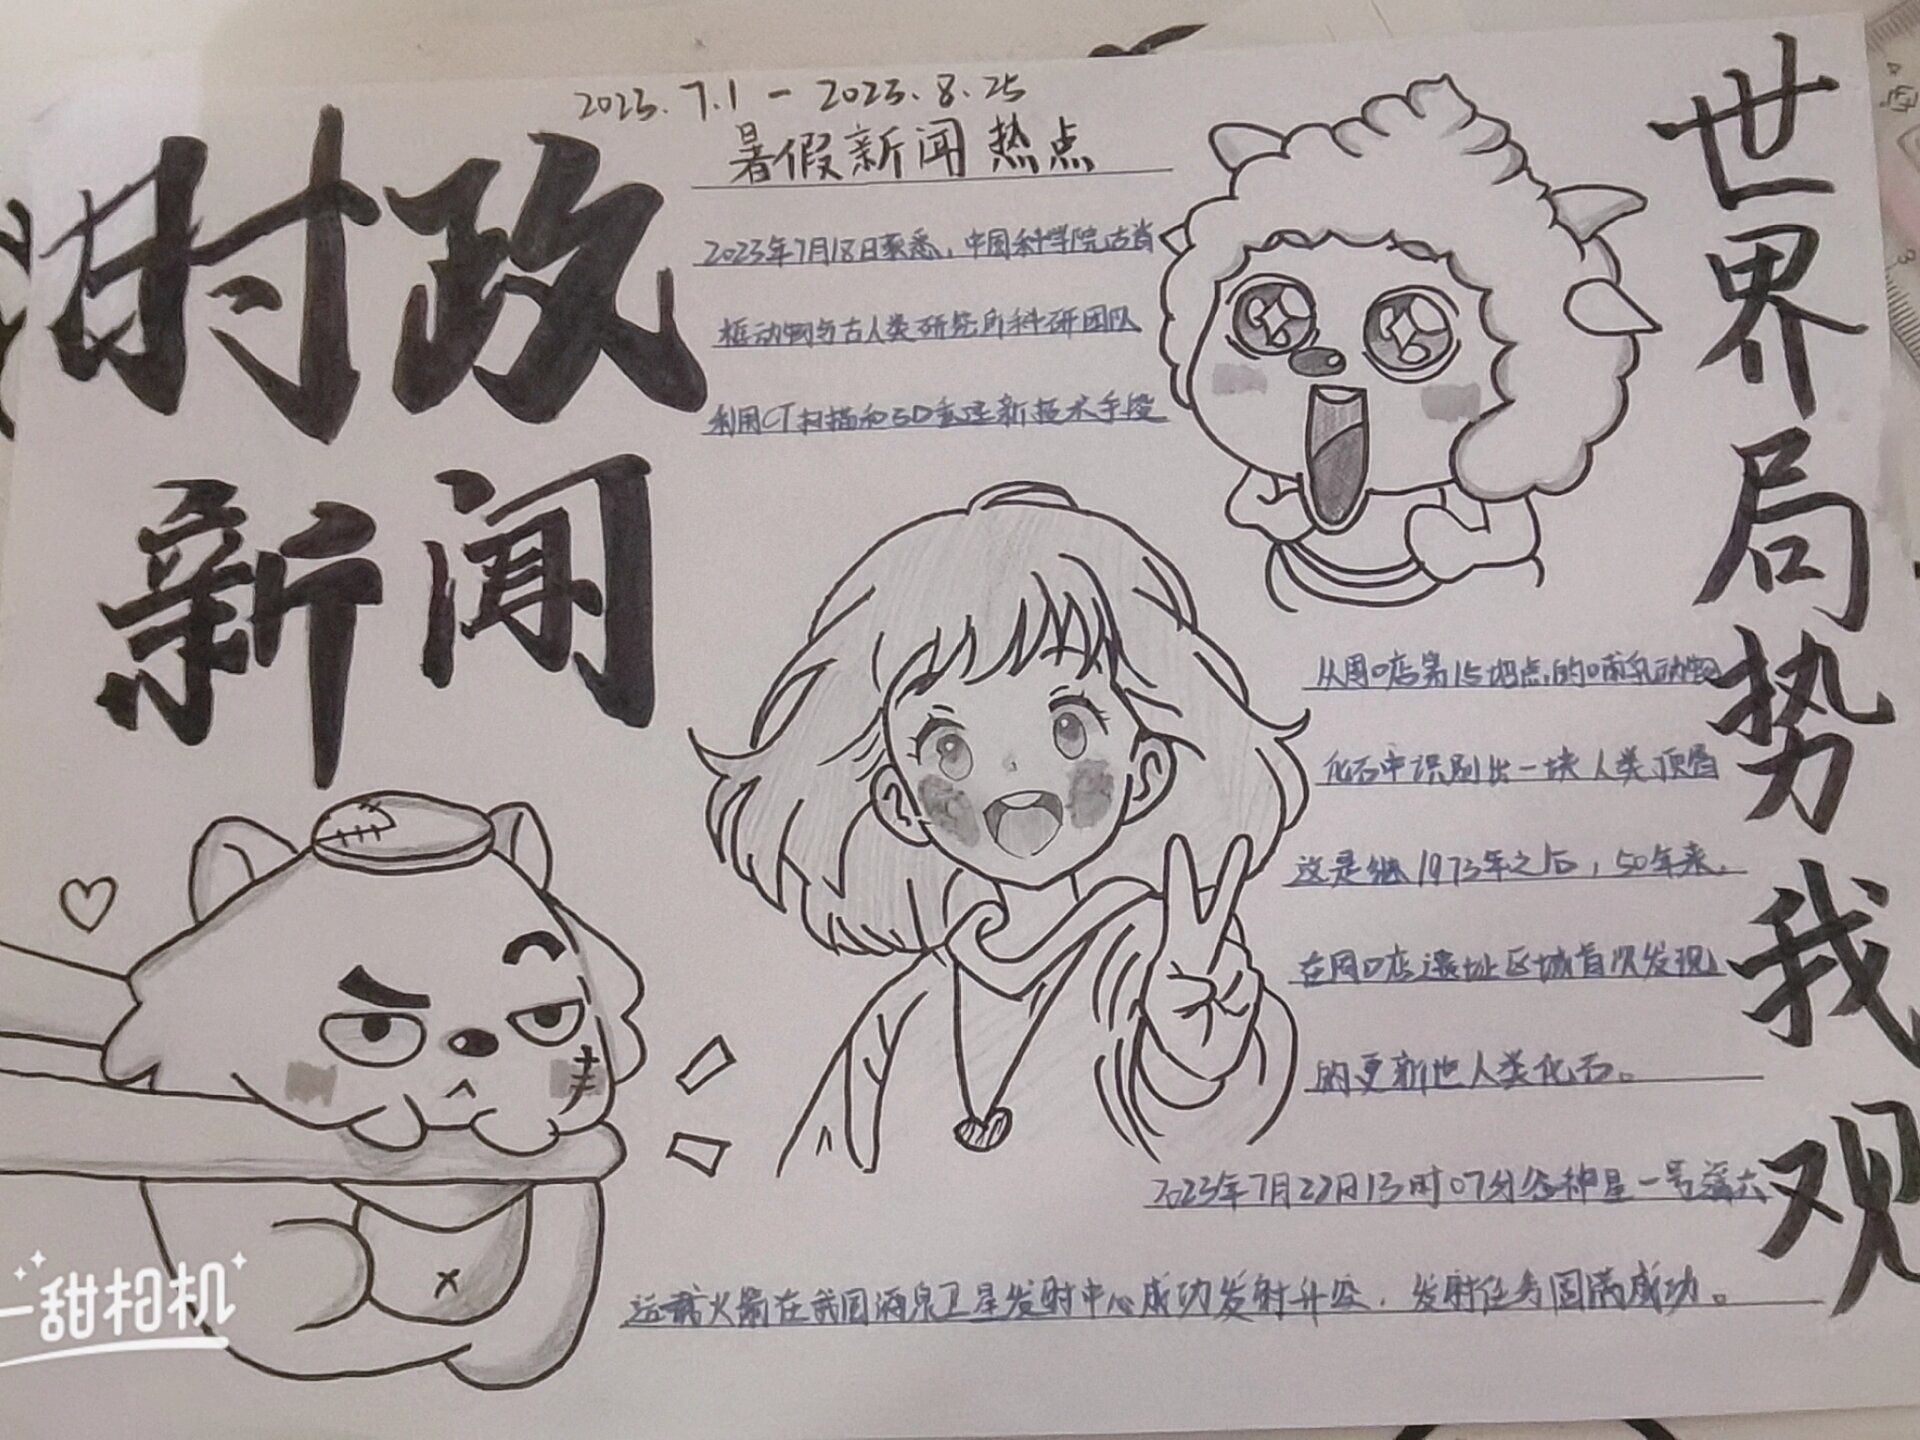 时政
新闻
2023.7.1-2023.8.25
暑假新闻热点
2023年7月18日获悉，中国科学院古脊
椎动物与古人类研究所科研团队
利用CT扫描和3D重建新技术手段
从周口店第15地点的哺乳动物
化石中识别出一块人类顶骨
这是继1973年之后，50年来，
在周口店遗址区域首次发现
的更新世人类化石。
2023年7月22日13时07分谷神星一号遥六
运载火箭在我国酒泉卫星发射中心成功发射升空，发射任务圆满成功。
世界局势我观
一甜相机